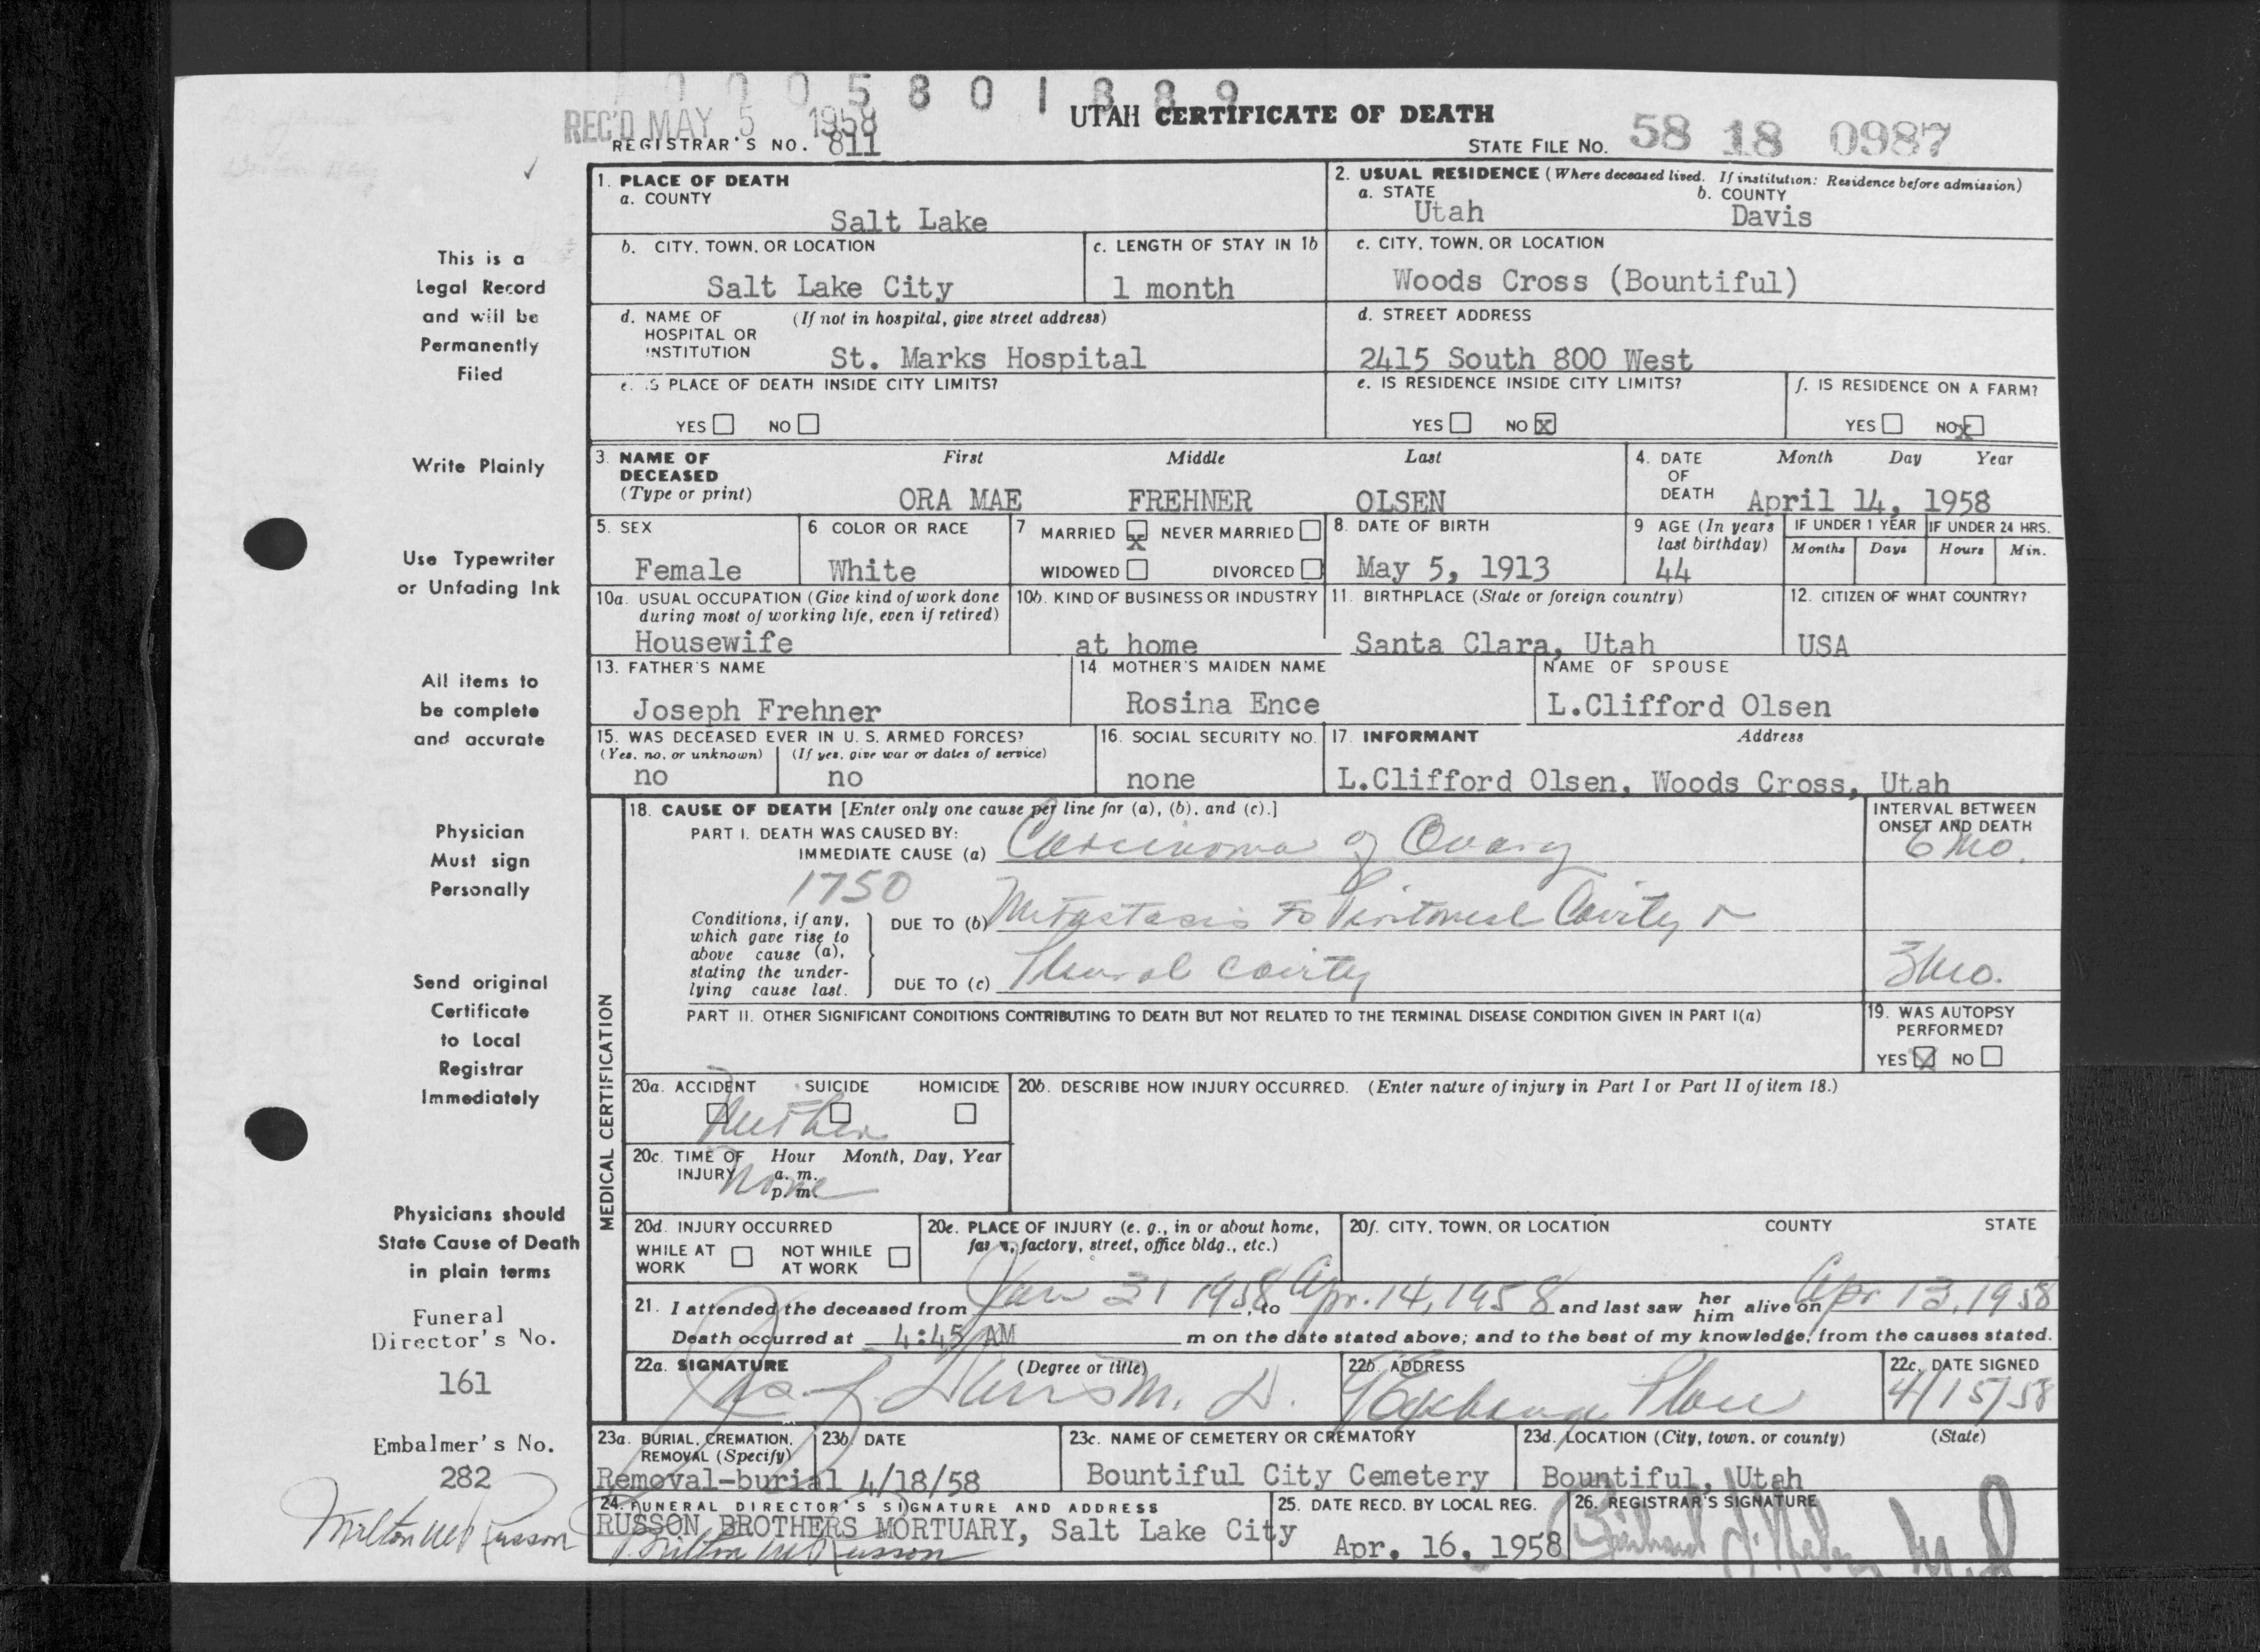 0005801889
REC'D MAY 5 1958
UTAH CERTIFICATE OF DEATH
REGISTRAR'S NO. 811
STATE FILE NO. 58 18 0987
This is a
Legal Record
and will be
Permanently
Filed
Write Plainly
Use Typewriter
or Unfading Ink
All items to
be complete
and accurate
Physician
Must sign
Personally
Send original
Certificate
to Local
Registrar
Immediately
Physicians should
State Cause of Death
in plain terms
Funeral
Director's No.
161
Embalmer's No.
282
Milton W Russon
1. PLACE OF DEATH
a. COUNTY
Salt Lake
2. USUAL RESIDENCE (Where deceased lived. If institution: Residence before admission)
a. STATE b. COUNTY
Utah Davis
b. CITY, TOWN, OR LOCATION c. LENGTH OF STAY IN 1b
Salt Lake City 1 month
c. CITY, TOWN, OR LOCATION
Woods Cross (Bountiful)
d. NAME OF (If not in hospital, give street address)
HOSPITAL OR
INSTITUTION St. Marks Hospital
d. STREET ADDRESS
2415 South 800 West
e. IS PLACE OF DEATH INSIDE CITY LIMITS?
YES NO
e. IS RESIDENCE INSIDE CITY LIMITS?
YES NO X
f. IS RESIDENCE ON A FARM?
YES NO X
3. NAME OF First Middle Last
DECEASED
(Type or print) ORA MAE FREHNER OLSEN
4. DATE Month Day Year
OF
DEATH April 14, 1958
5. SEX
Female
6. COLOR OR RACE
White
7 MARRIED X NEVER MARRIED
WIDOWED DIVORCED
8. DATE OF BIRTH
May 5, 1913
9 AGE (In years
last birthday)
44
IF UNDER 1 YEAR IF UNDER 24 HRS.
Months Days Hours Min.
10a. USUAL OCCUPATION (Give kind of work done
during most of working life, even if retired)
Housewife
10b. KIND OF BUSINESS OR INDUSTRY
at home
11. BIRTHPLACE (State or foreign country)
Santa Clara, Utah
12. CITIZEN OF WHAT COUNTRY?
USA
13. FATHER'S NAME
Joseph Frehner
14. MOTHER'S MAIDEN NAME
Rosina Ence
NAME OF SPOUSE
L.Clifford Olsen
15. WAS DECEASED EVER IN U. S. ARMED FORCES?
(Yes, no, or unknown) (If yes, give war or dates of service)
no no
16. SOCIAL SECURITY NO.
none
17. INFORMANT Address
L.Clifford Olsen, Woods Cross, Utah
MEDICAL CERTIFICATION
18. CAUSE OF DEATH [Enter only one cause per line for (a), (b), and (c).]
INTERVAL BETWEEN
ONSET AND DEATH
PART I. DEATH WAS CAUSED BY:
IMMEDIATE CAUSE (a) Carcinoma of Ovary 6 Mo.
1750
Conditions, if any,
which gave rise to
above cause (a),
stating the under-
lying cause last.
DUE TO (b) Metastasis to Peritoneal Cavity &
DUE TO (c) Pleural cavity 3 Mo.
PART II. OTHER SIGNIFICANT CONDITIONS CONTRIBUTING TO DEATH BUT NOT RELATED TO THE TERMINAL DISEASE CONDITION GIVEN IN PART I(a)
19. WAS AUTOPSY
PERFORMED?
YES X NO
20a. ACCIDENT SUICIDE HOMICIDE
Neither
20b. DESCRIBE HOW INJURY OCCURRED. (Enter nature of injury in Part I or Part II of item 18.)
20c. TIME OF Hour Month, Day, Year
INJURY a. m.
p. m.
None
20d. INJURY OCCURRED
WHILE AT WORK NOT WHILE AT WORK
20e. PLACE OF INJURY (e. g., in or about home,
farm, factory, street, office bldg., etc.)
20f. CITY, TOWN, OR LOCATION COUNTY STATE
21. I attended the deceased from Jan 31 1958, to Apr. 14, 1958 and last saw her him alive on Apr 13, 1958
Death occurred at 4:45 AM m on the date stated above; and to the best of my knowledge, from the causes stated.
22a. SIGNATURE (Degree or title)
M. D.
22b. ADDRESS
Exchange Place
22c. DATE SIGNED
4/15/58
23a. BURIAL, CREMATION,
REMOVAL (Specify)
Removal-burial
23b. DATE
4/18/58
23c. NAME OF CEMETERY OR CREMATORY
Bountiful City Cemetery
23d. LOCATION (City, town, or county) (State)
Bountiful, Utah
24. FUNERAL DIRECTOR'S SIGNATURE AND ADDRESS
RUSSON BROTHERS MORTUARY, Salt Lake City
Milton W Russon
25. DATE RECD. BY LOCAL REG.
Apr. 16, 1958
26. REGISTRAR'S SIGNATURE